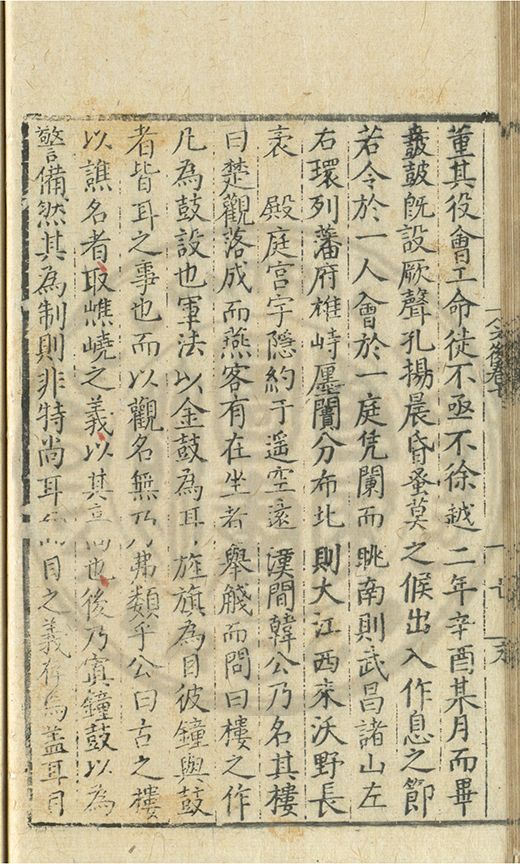 董其役會工命徒不亟不徐越二年辛酉某月而畢
鼖鼓旣設厥聲孔揚晨昏蚤莫之候出入作息之節
若令於一人會於一庭凭闌而眺南則武昌諸山左
右環列藩府雄峙廛闠分布北則大江西來沃野長
袤殿庭宫宇隱約于遥空遠漠間韓公乃名其樓
曰楚觀落成而燕客有在坐者舉觴而問曰樓之作
凡為鼓設也軍法以金鼓為耳旌旗為目彼鐘與鼓
者皆耳之事也而以觀名無乃弗類乎公曰古之樓
以譙名者取嶕嶢之義以其高也後乃寘鐘鼓以為
警備然其為制則非特尚耳目之義存焉盖耳目